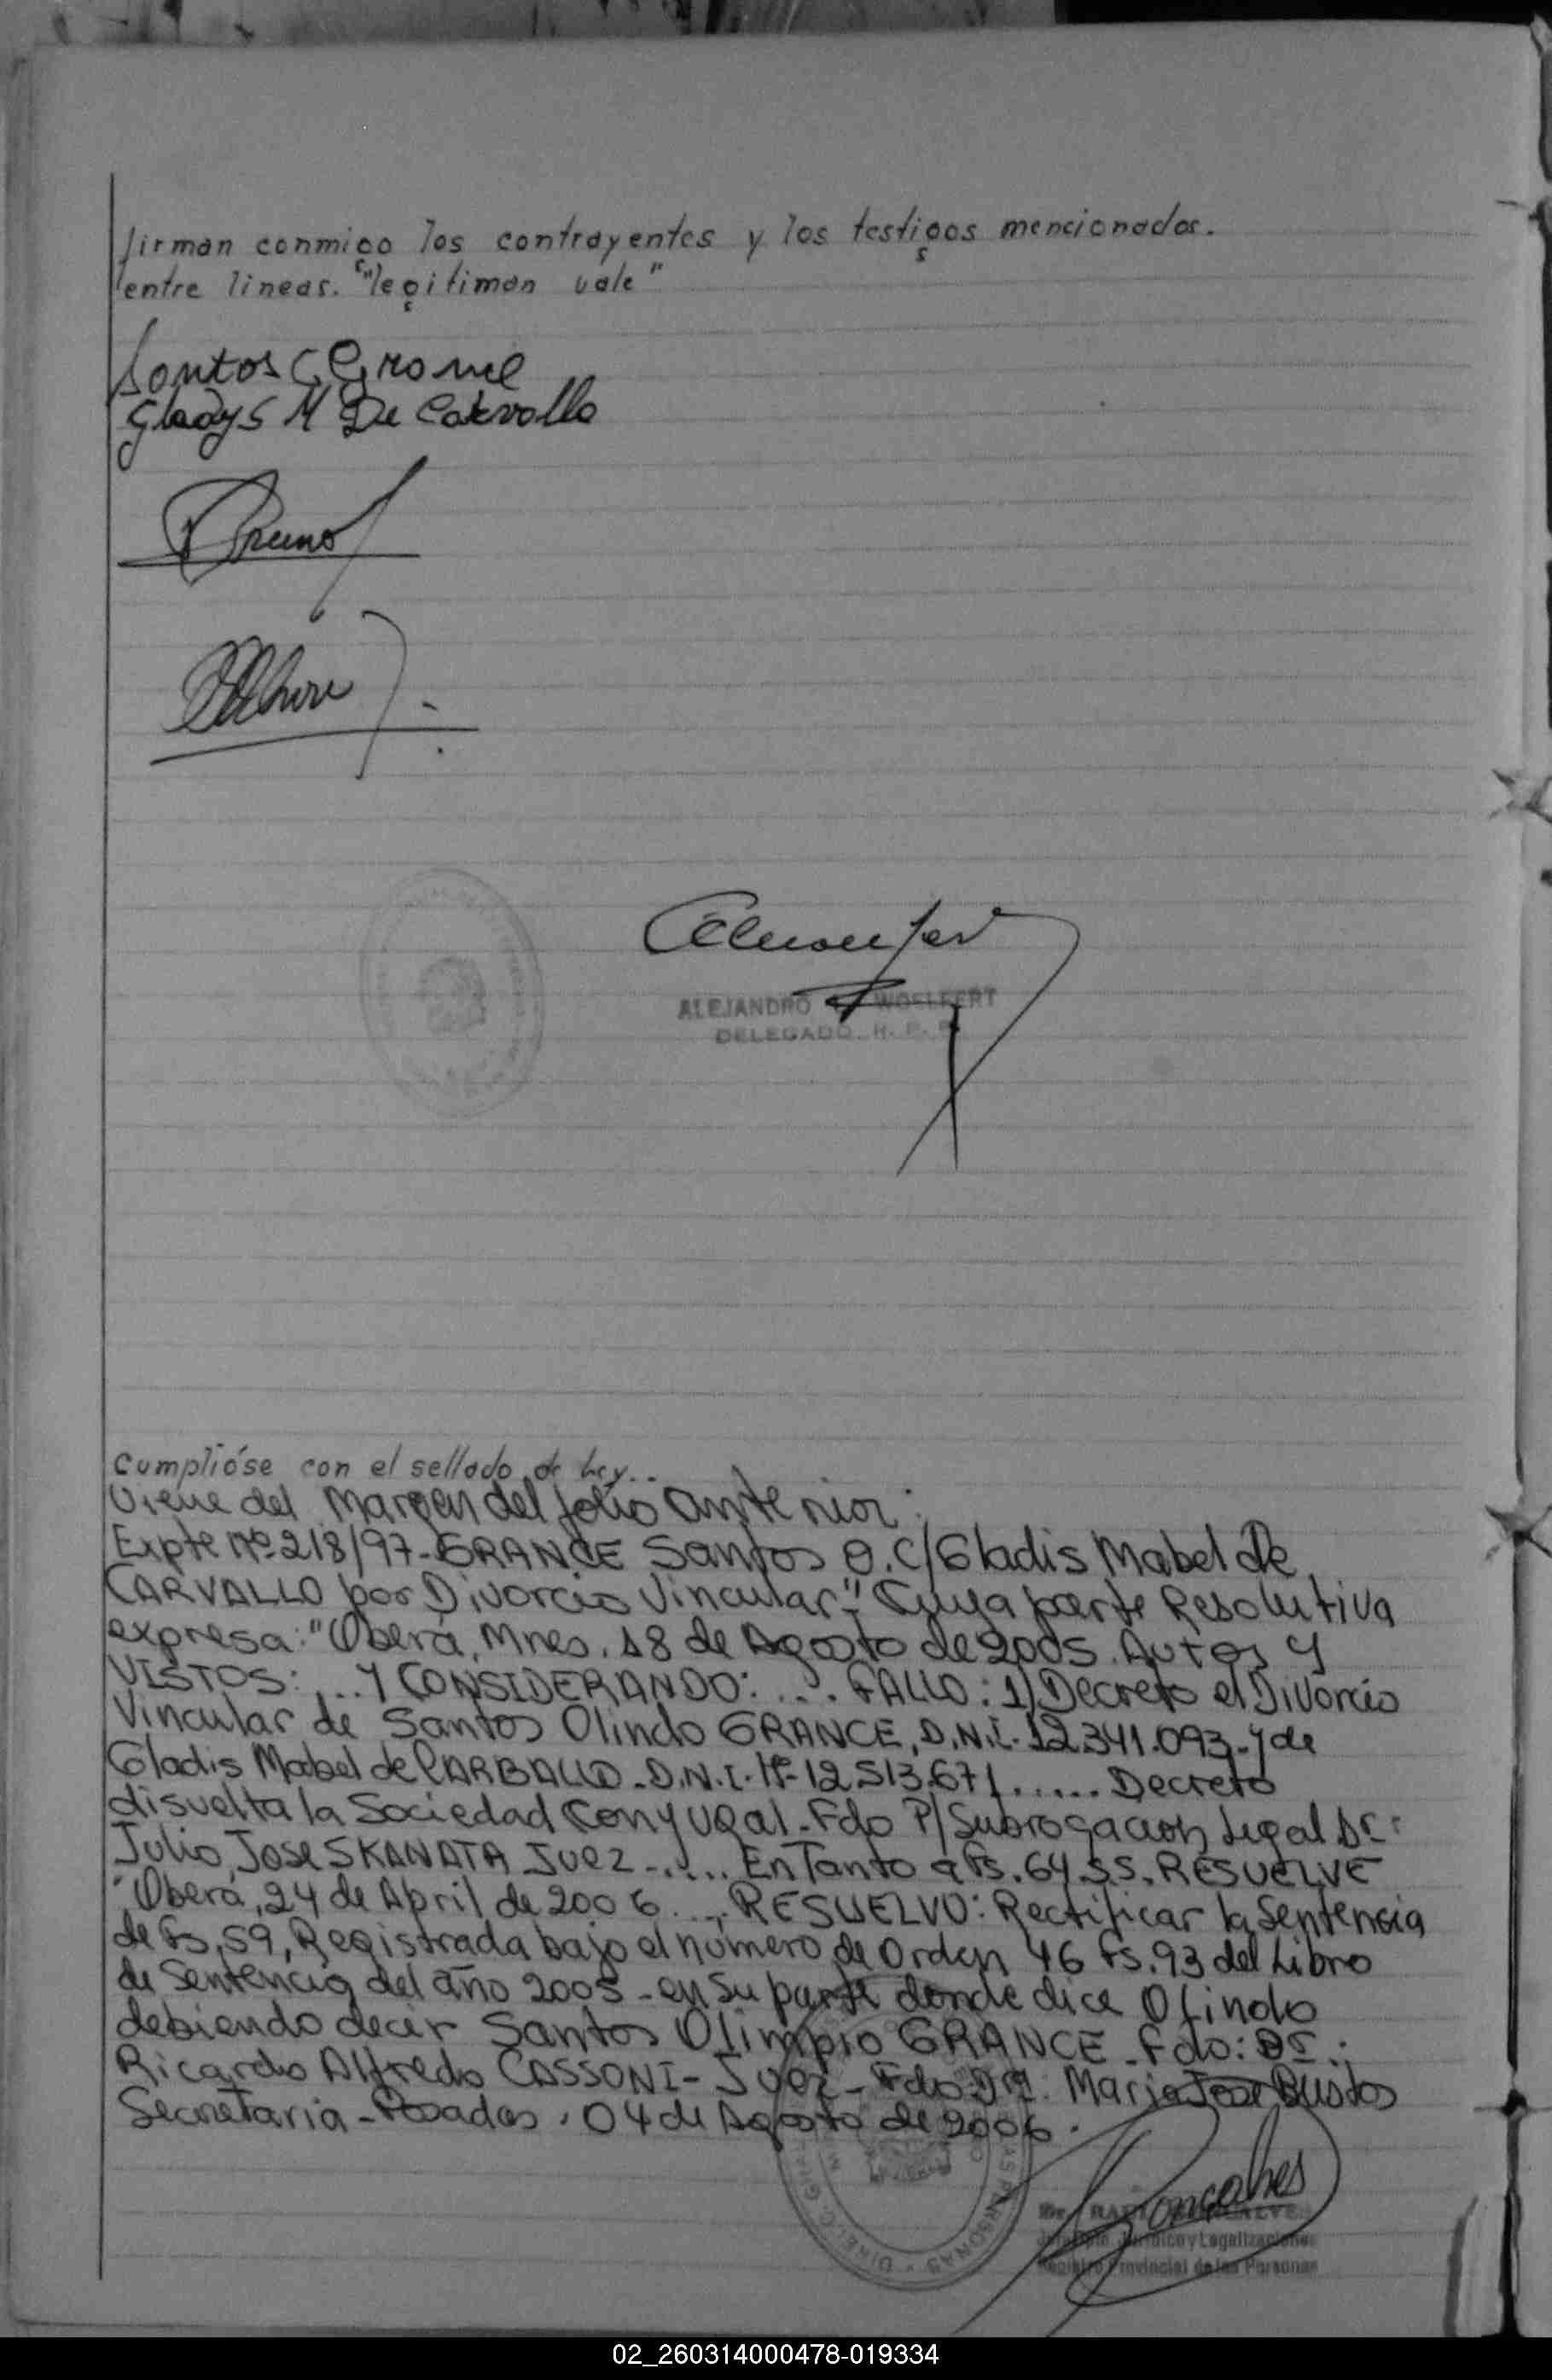 firman conmigo los contrayentes y los testigos mencionados.
entre lineas. "legitiman vale"
Santos Grance
Gladys M De Carvallo
ALEJANDRO WOELFERT
DELEGADO H. P. P.
Cumplióse con el sellado de ley..
Viene del Margen del folio anterior:
Expte Nº 218/97-GRANCE Santos O. C/Gladis Mabel De
CARVALLO por Divorcio Vincular"- Cuya parte Resolutiva
expresa: "Oberá, Mnes. 18 de Agosto de 2005. Autos y
VISTOS: ... Y CONSIDERANDO: .... FALLO: 1) Decreto el Divorcio
Vincular de Santos Olindo GRANCE, D.N.I. 12.341.093.-y de
Gladis Mabel de CARBALLO-D.N.I. Nº-12.513.671...... Decreto
disuelta la Sociedad Conyugal-Fdo P/Subrogacion Legal Dr:
Julio Jose SKANATA Juez-..... En Tanto a fs. 64.SS. RESUELVE
"Oberá, 24 de April de 2006.... RESUELVO: Rectificar la Sentencia
de fs, 59, Registrada bajo el número de Orden 46 fs. 93 del Libro
de Sentencia del año 2005-en su parte donde dice Olindo
debiendo decir Santos Olimpio GRANCE-Fdo: Dr.:
Ricardo Alfredo CASSONI-Juez-Fdo Dra: Maria Jose Bustos
Secretaria-Posadas, 04 de Agosto de 2006.
Dr. RA
Jurídico y Legalizaciones
Registro Provincial de las Personas
DIREC. GRAL
AS PERSONAS
02_260314000478-019334